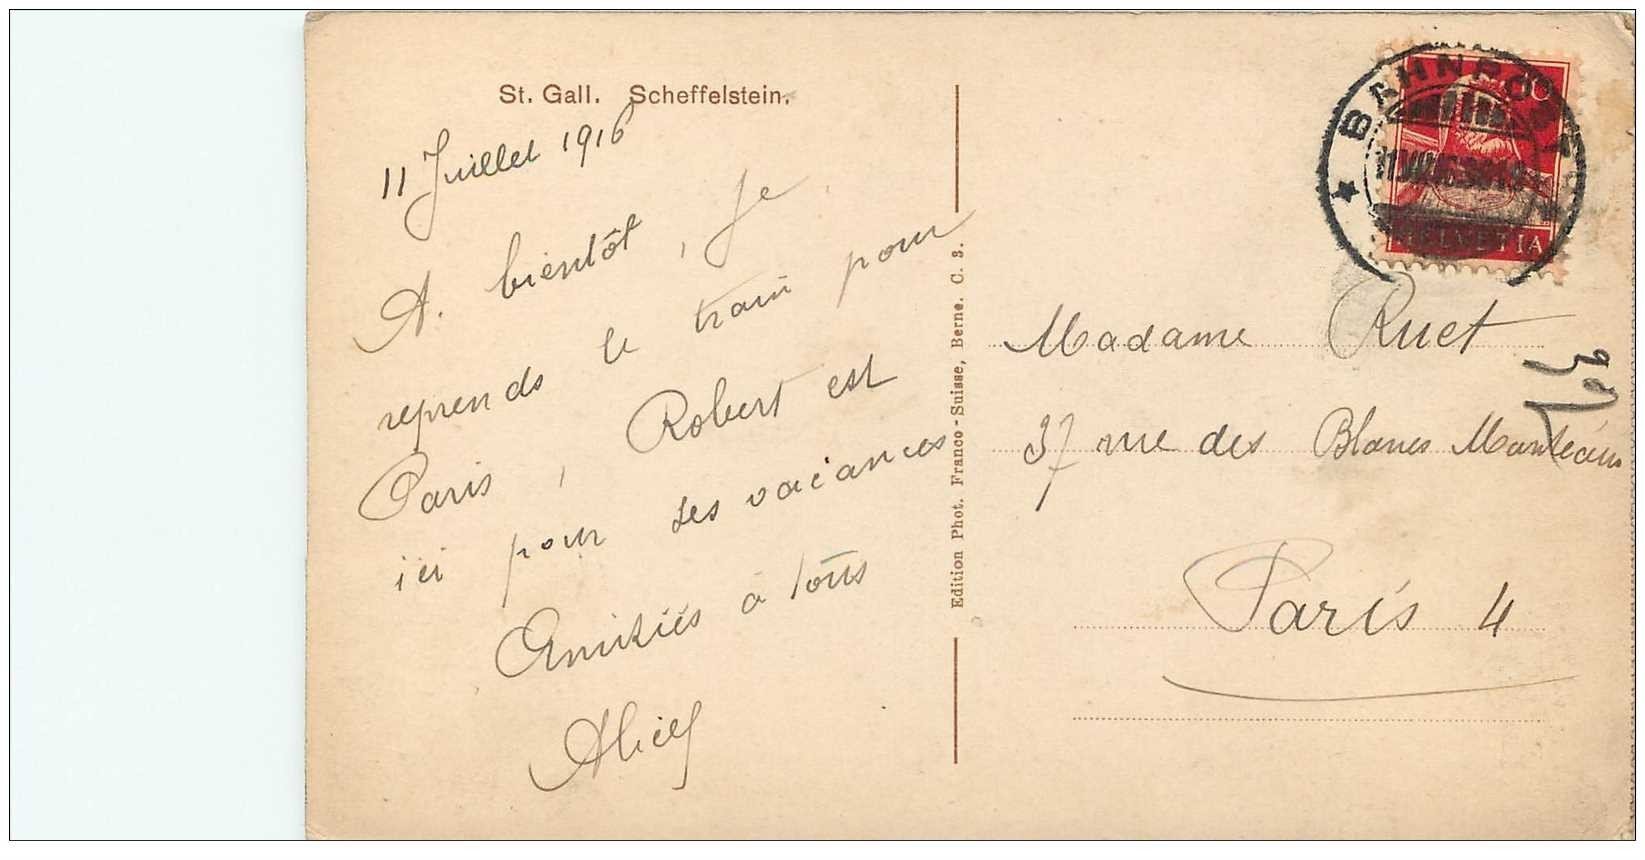 St. Gall. Scheffelstein.
11 Juillet 1916
A. bientôt, Je
reprends le train pour
Paris, Robert est
ici pour ses vacances
Amitiés à tous
Alice
Edition Phot. Franco-Suisse, Berne. C. S.
BAHNPOST
10
HELVETIA
Madame Ruet
37 rue des Blancs Manteaux
Paris 4
32